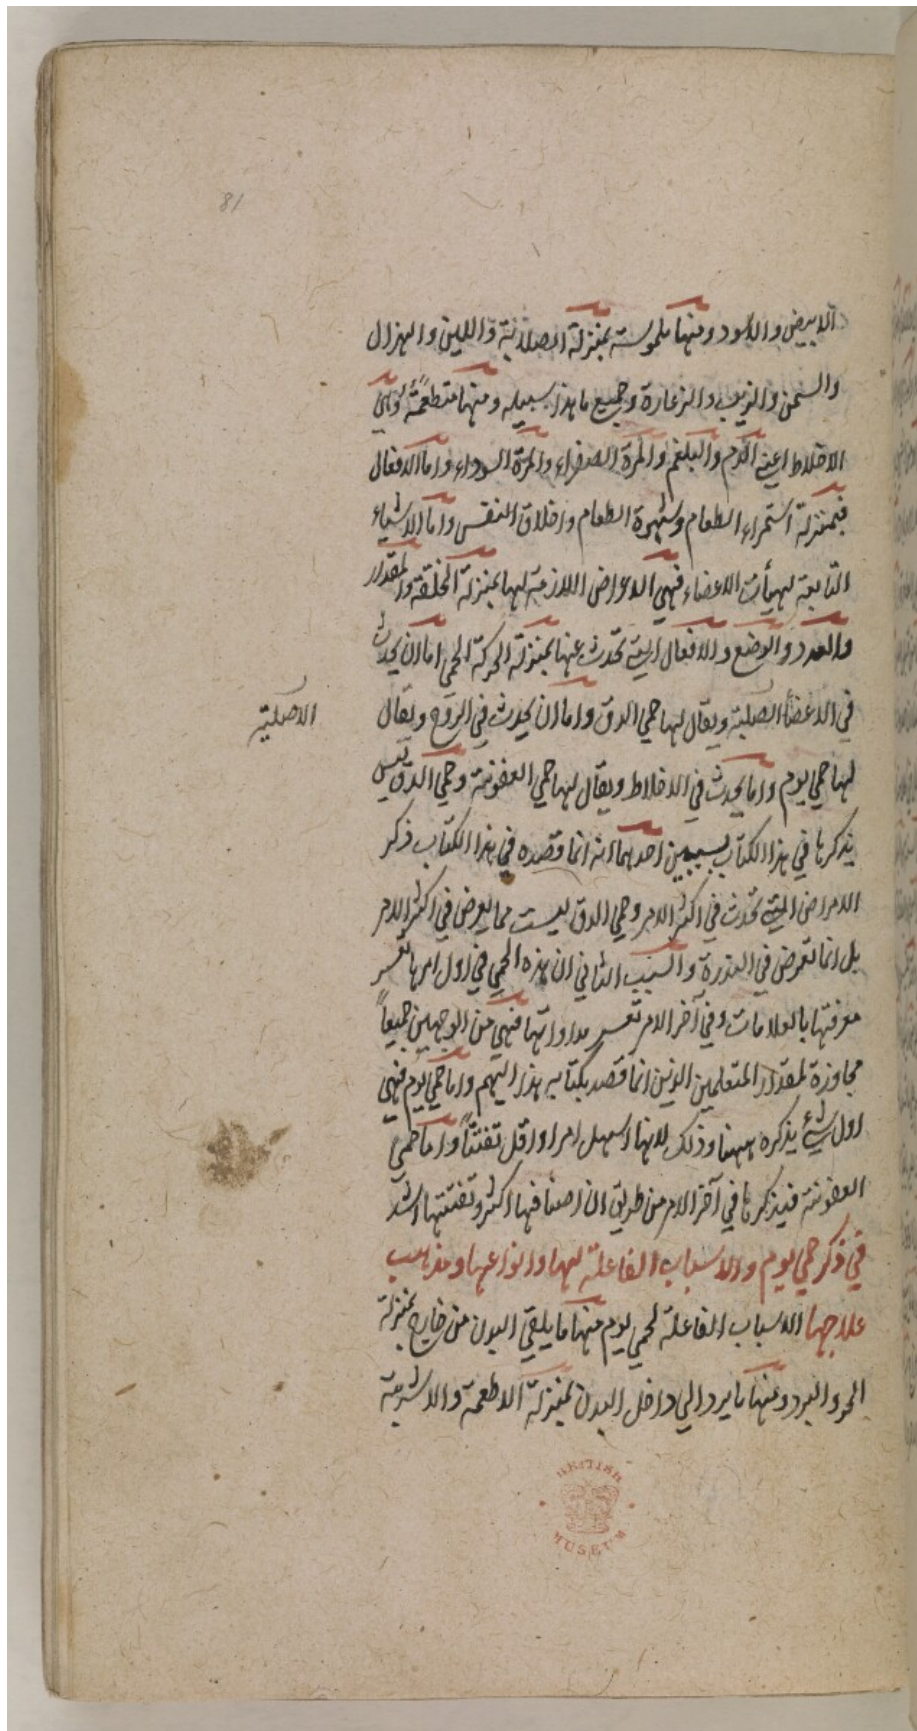 81
الابيض والاسود ومنها ملموسة بمنزلة الصلابة واللين والهزال
والسمن والزبب والزعارة وجميع ما هذا سبيله ومنها متطعمة وهي
الاخلاط اعني الدم والبلغم والمرة الصفراء والمرة السوداء واما الافعال
فبمنزلة استمراء الطعام وشهوة الطعام واخلاق النفس واما الاشياء
التابعة لهيأت الاعضاء فهي الاعراض اللازمة لها بمنزلة الخلقة والمقدار
والعدد والوضع والافعال التي تحدث عنها بمنزلة الحركة الحمى اما ان يحدث
في الاعضأ الصلبة ويقال لها حمي الدق واما ان يحدث في الروح ويقال
الاصلية
لها حمي يوم واما يحدث في الاخلاط ويقال لها حمي العفونة وحمي الدق ليس
يذكرها في هذا الكتاب لسببين احدهما انه انما قصده في هذا الكتاب ذكر
الامراض التي تحدث في اكثر الامر وحمي الدق ليست مما يعرض في اكثر الامر
بل انما تعرض في الندرة والسبب الثاني ان هذه الحمي في اول امرها تعسر
معرفتها بالعلامات وفي آخر الامر تعسر مداواتها فهي من الوجهين جميعاً
مجاوزة لمقدار المتعلمين الذين انما قصد بكتابه هذا اليهم واما حمي يوم فهي
اول شيء يذكره ههنا وذلك لانها اسهل امرا واقل تفنناً واما حمي
العفونة فيذكرها في آخر الامر من طريق ان اصنافها اكثر وتفننها اشد
في ذكر حمي يوم والاسباب الفاعلة لها وانواعها ومذاهب
علاجها الاسباب الفاعلة لحمي يوم منها ما يلقى البدن من خارج بمنزلة
الحر والبرد ومنها ما يرد الي داخل البدن بمنزلة الاطعمة والاشربة
BRITISH
MUSEUM